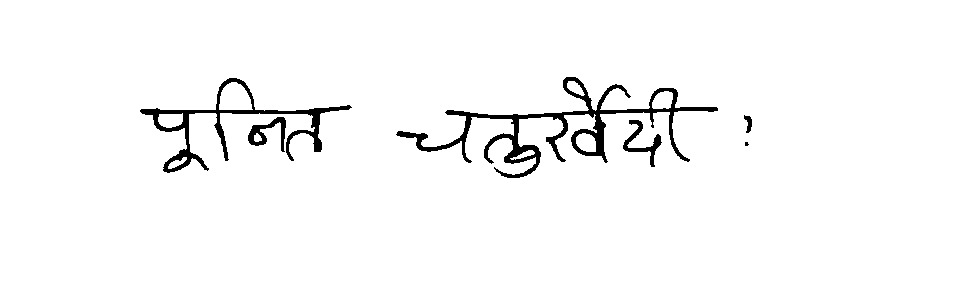 पूनित चतुर्वेदी ?